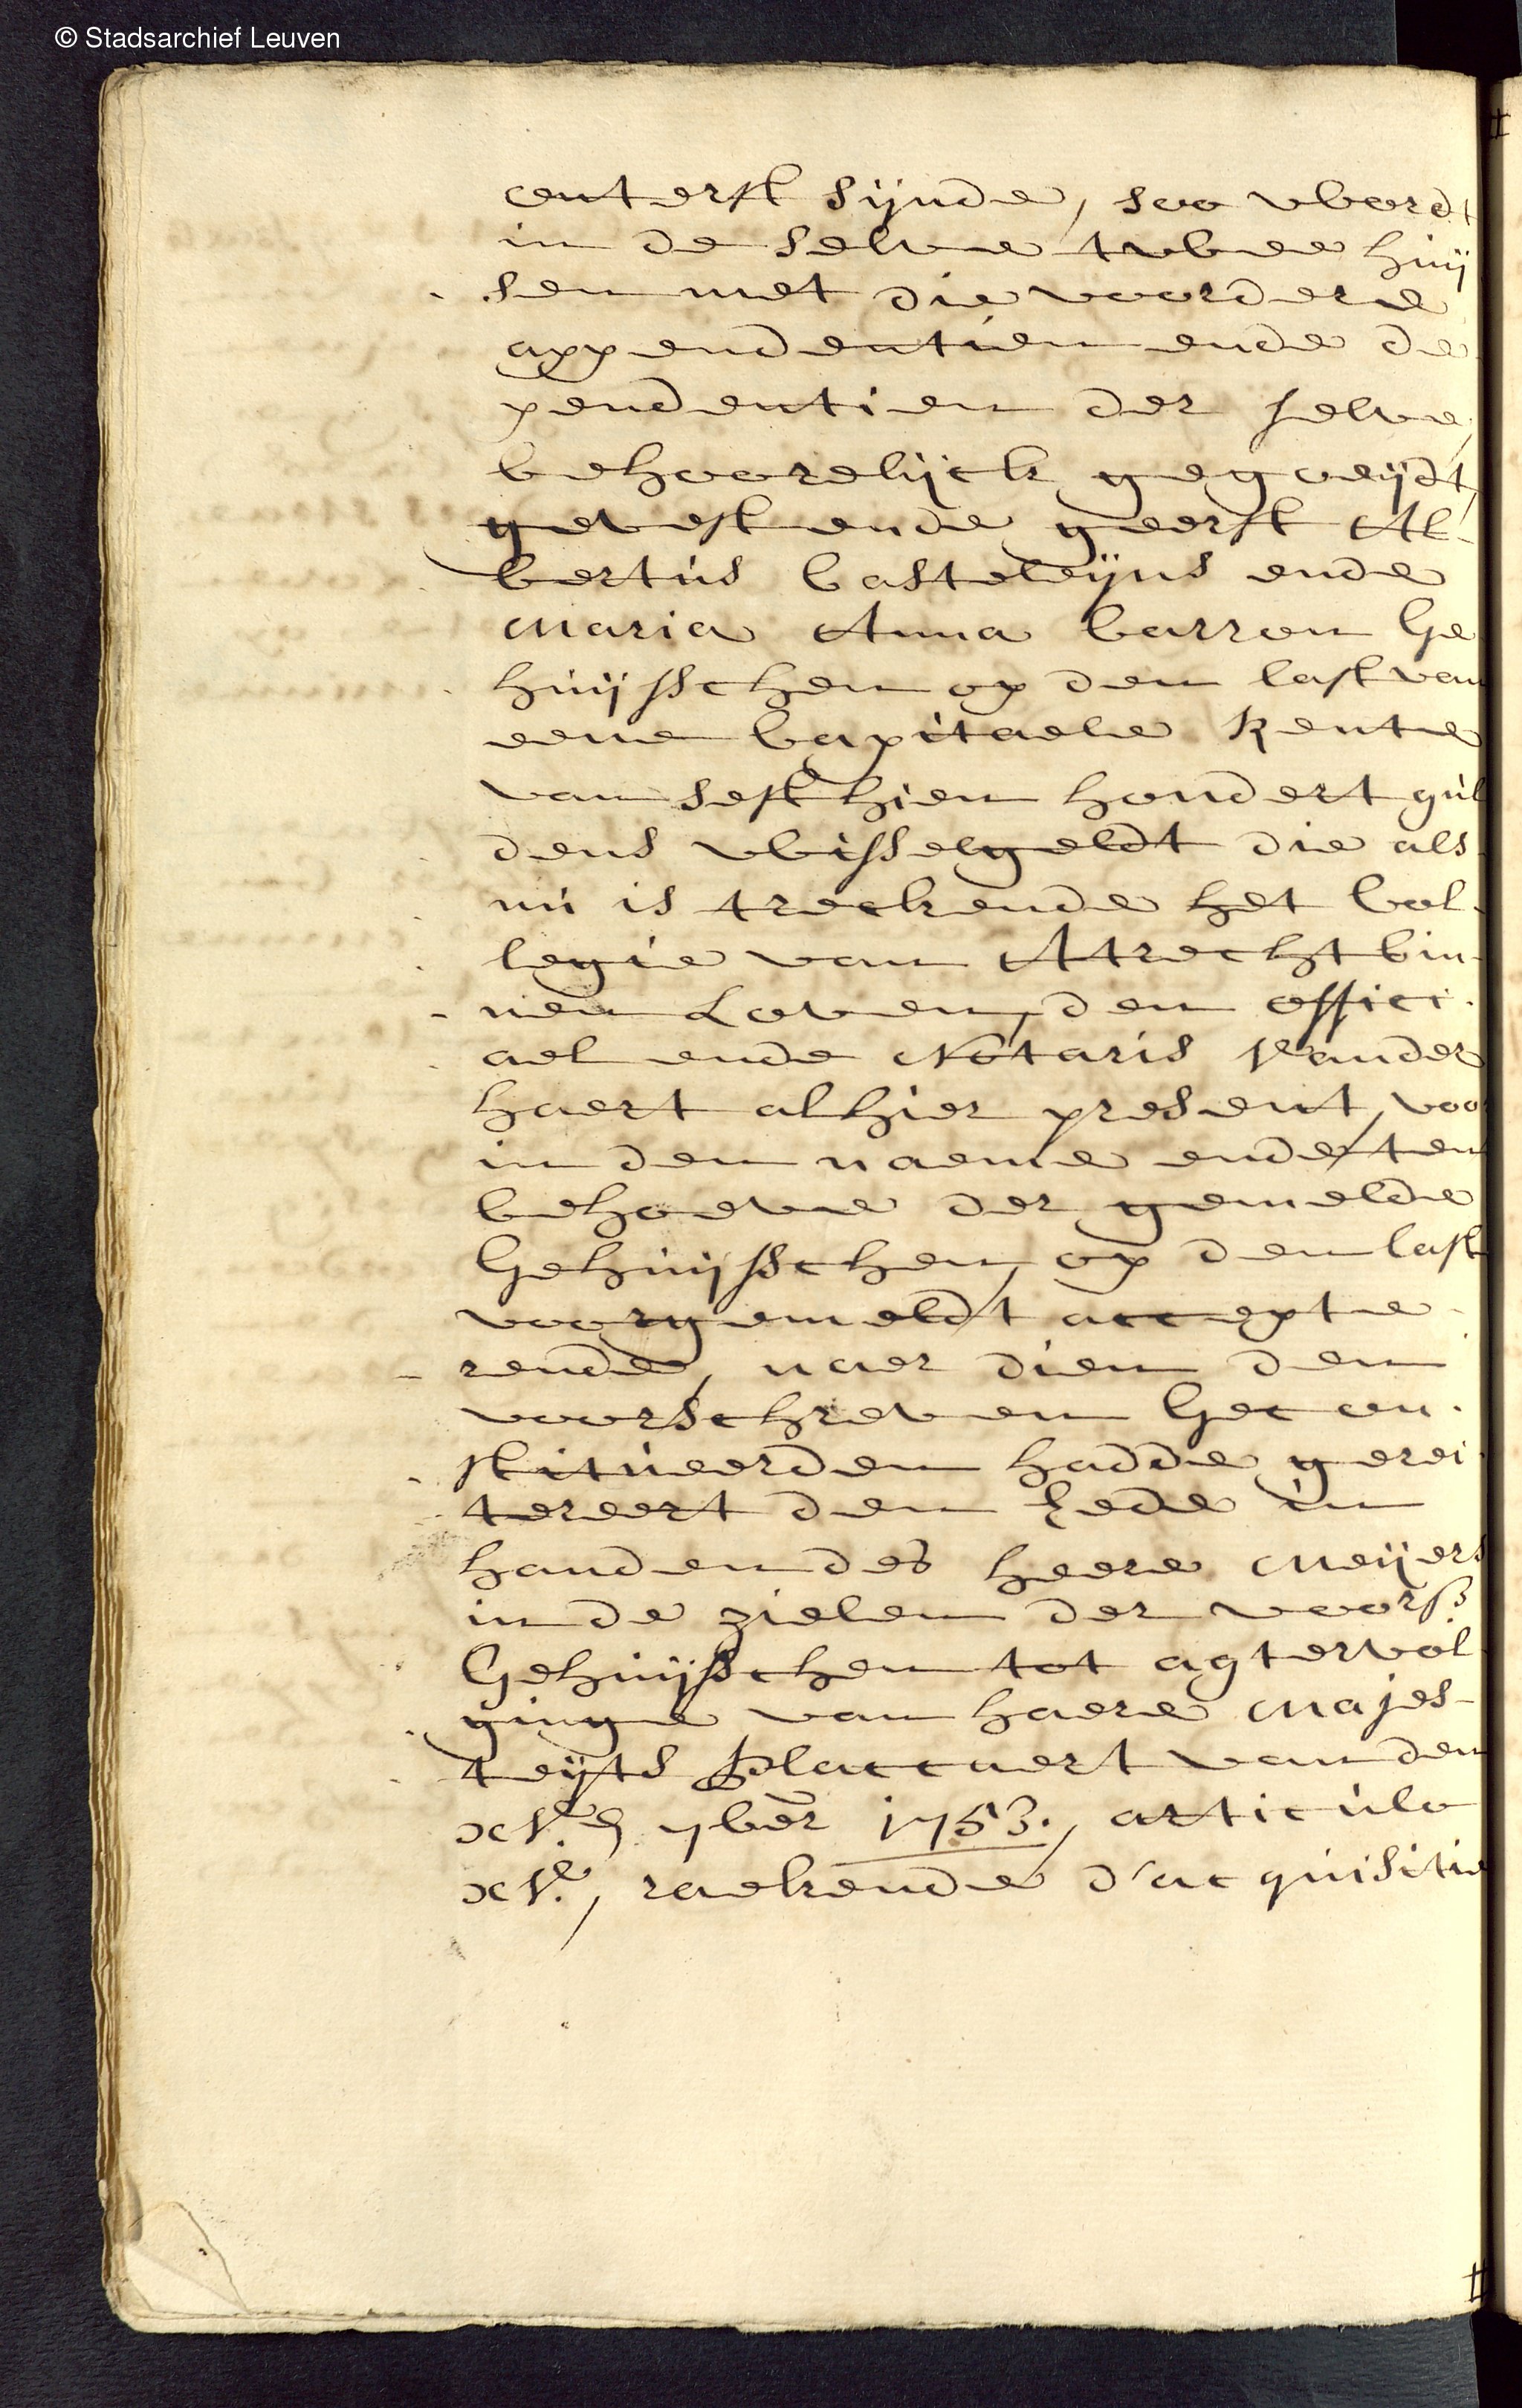 © Stadsarchief Leuven
onterft sijnde, soo wordt
in de selve twee huij
sen met die voordere
appendentien ende de
pendentien der selve
behoorelijck gegoeijdt,
gevest ende geerft Al-
bertus Casteleijns ende
Maria Anna Carron Ge
huijsschen op den last van
eene Capitaele Rente
van sesthien hondert gul
dens wisselgeldt die als
nu is treckende het Col-
legie van Atrecht bin-
nen Loven, den offici-
ael ende Notaris Vander
haert alhier present, voor
in den naeme ende ten
behoeve der gemelde
Gehuijsschen, op den last
voorgemeldt accepte-
rende, naer dien den
voorschreven Gecon-
stitueerden hadde gerei
tereert den Eede in
handen des heere Meijers
in de zielen der voors.
Gehuijsschen tot agtervol
ginge van haere Majes-
teijts Placcaert van den
xv.en 7ber 1753., articulo
xv.e, raekende d'acquisitie